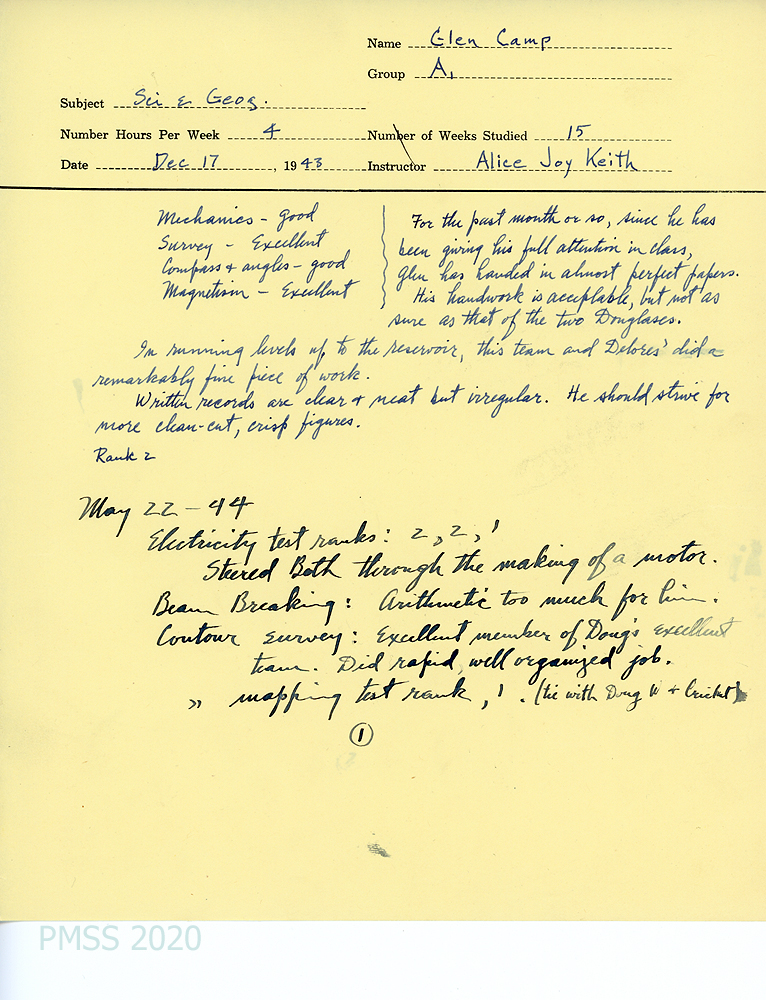 Name Glen Camp
Group A1
Subject Sci & Geog.
Number Hours Per Week 4 Number of Weeks Studied 15
Date Dec 17, 1943 Instructor Alice Joy Keith
Mechanics - good
Survey - Excellent
Compass & angles - good
Magnetism - Excellent
For the past month or so, since he has
been giving his full attention in class,
Glen has handed in almost perfect papers.
His handwork is acceptable, but not as
sure as that of the two Douglases.
In running levels up to the reservoir, this team and Delores' did a
remarkably fine piece of work.
Written records are clear & neat but irregular. He should strive for
more clean-cut, crisp figures.
Rank 2
May 22 - 44
Electricity test ranks: 2, 2, 1
Steered Beth through the making of a motor.
Beam Breaking: Arithmetic too much for him.
Contour survey: Excellent member of Doug's excellent
team. Did rapid, well organized job.
" mapping test rank, 1. (tie with Doug W & Cricket)
1
PMSS 2020